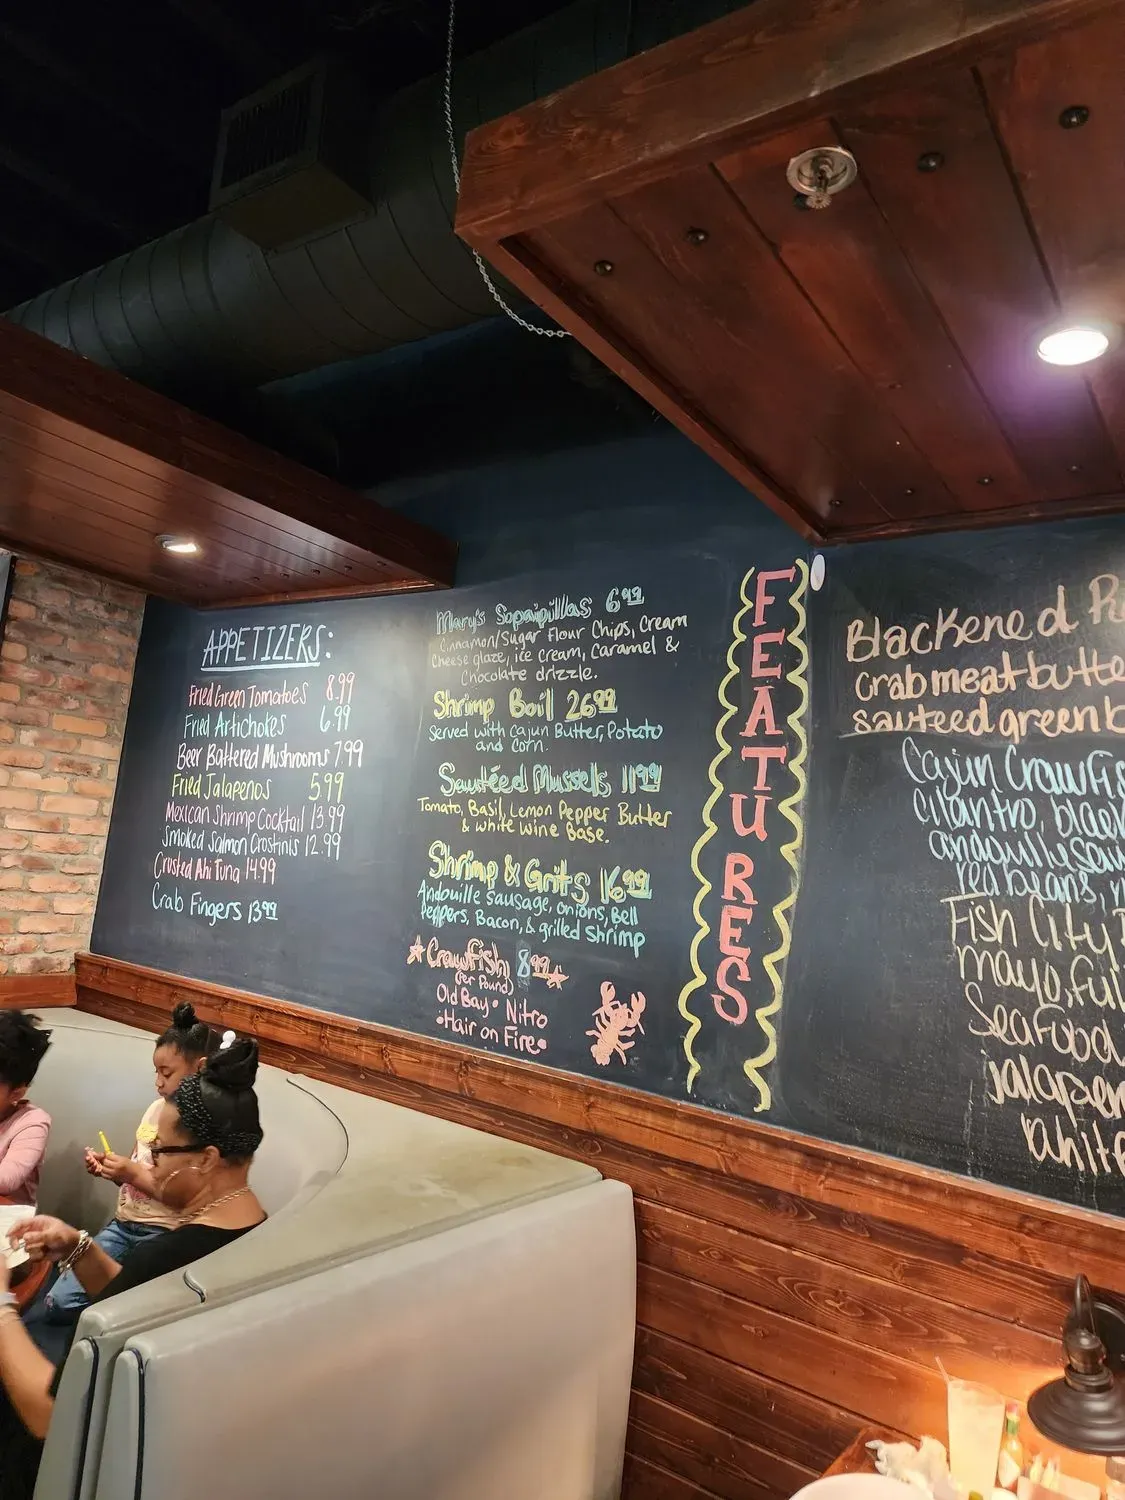 APPETIZERS:
Fried Green Tomatoes 8.99
Fried Artichokes 6.99
Beer Battered Mushrooms 7.99
Fried Jalapenos 5.99
Mexican Shrimp Cocktail 13.99
Smoked Salmon Crostinis 12.99
Crusted Ahi Tuna 14.99
Crab Fingers 13.99
Mary's Sopaipillas 6.99
Cinnamon/Sugar Flour Chips, Cream
Cheese glaze, ice cream, Caramel &
Chocolate drizzle.
Shrimp Boil 26.99
served with cajun Butter, Potato
and Corn.
Sautéed Mussels 11.99
Tomato, Basil, Lemon Pepper Butter
& White Wine Base.
Shrimp & Grits 16.99
Andouille sausage, onions, Bell
Peppers, Bacon, & grilled shrimp
Crawfish 8.99
(Per Pound)
Old Bay • Nitro
•Hair on Fire•
FEATURES
Blackened
Crab meat butte
sauteed green b
Cajun Crawfis
cilantro, black
andouille sau
red beans,
Fish City
mayo, ful
Seafood
jalapen
white